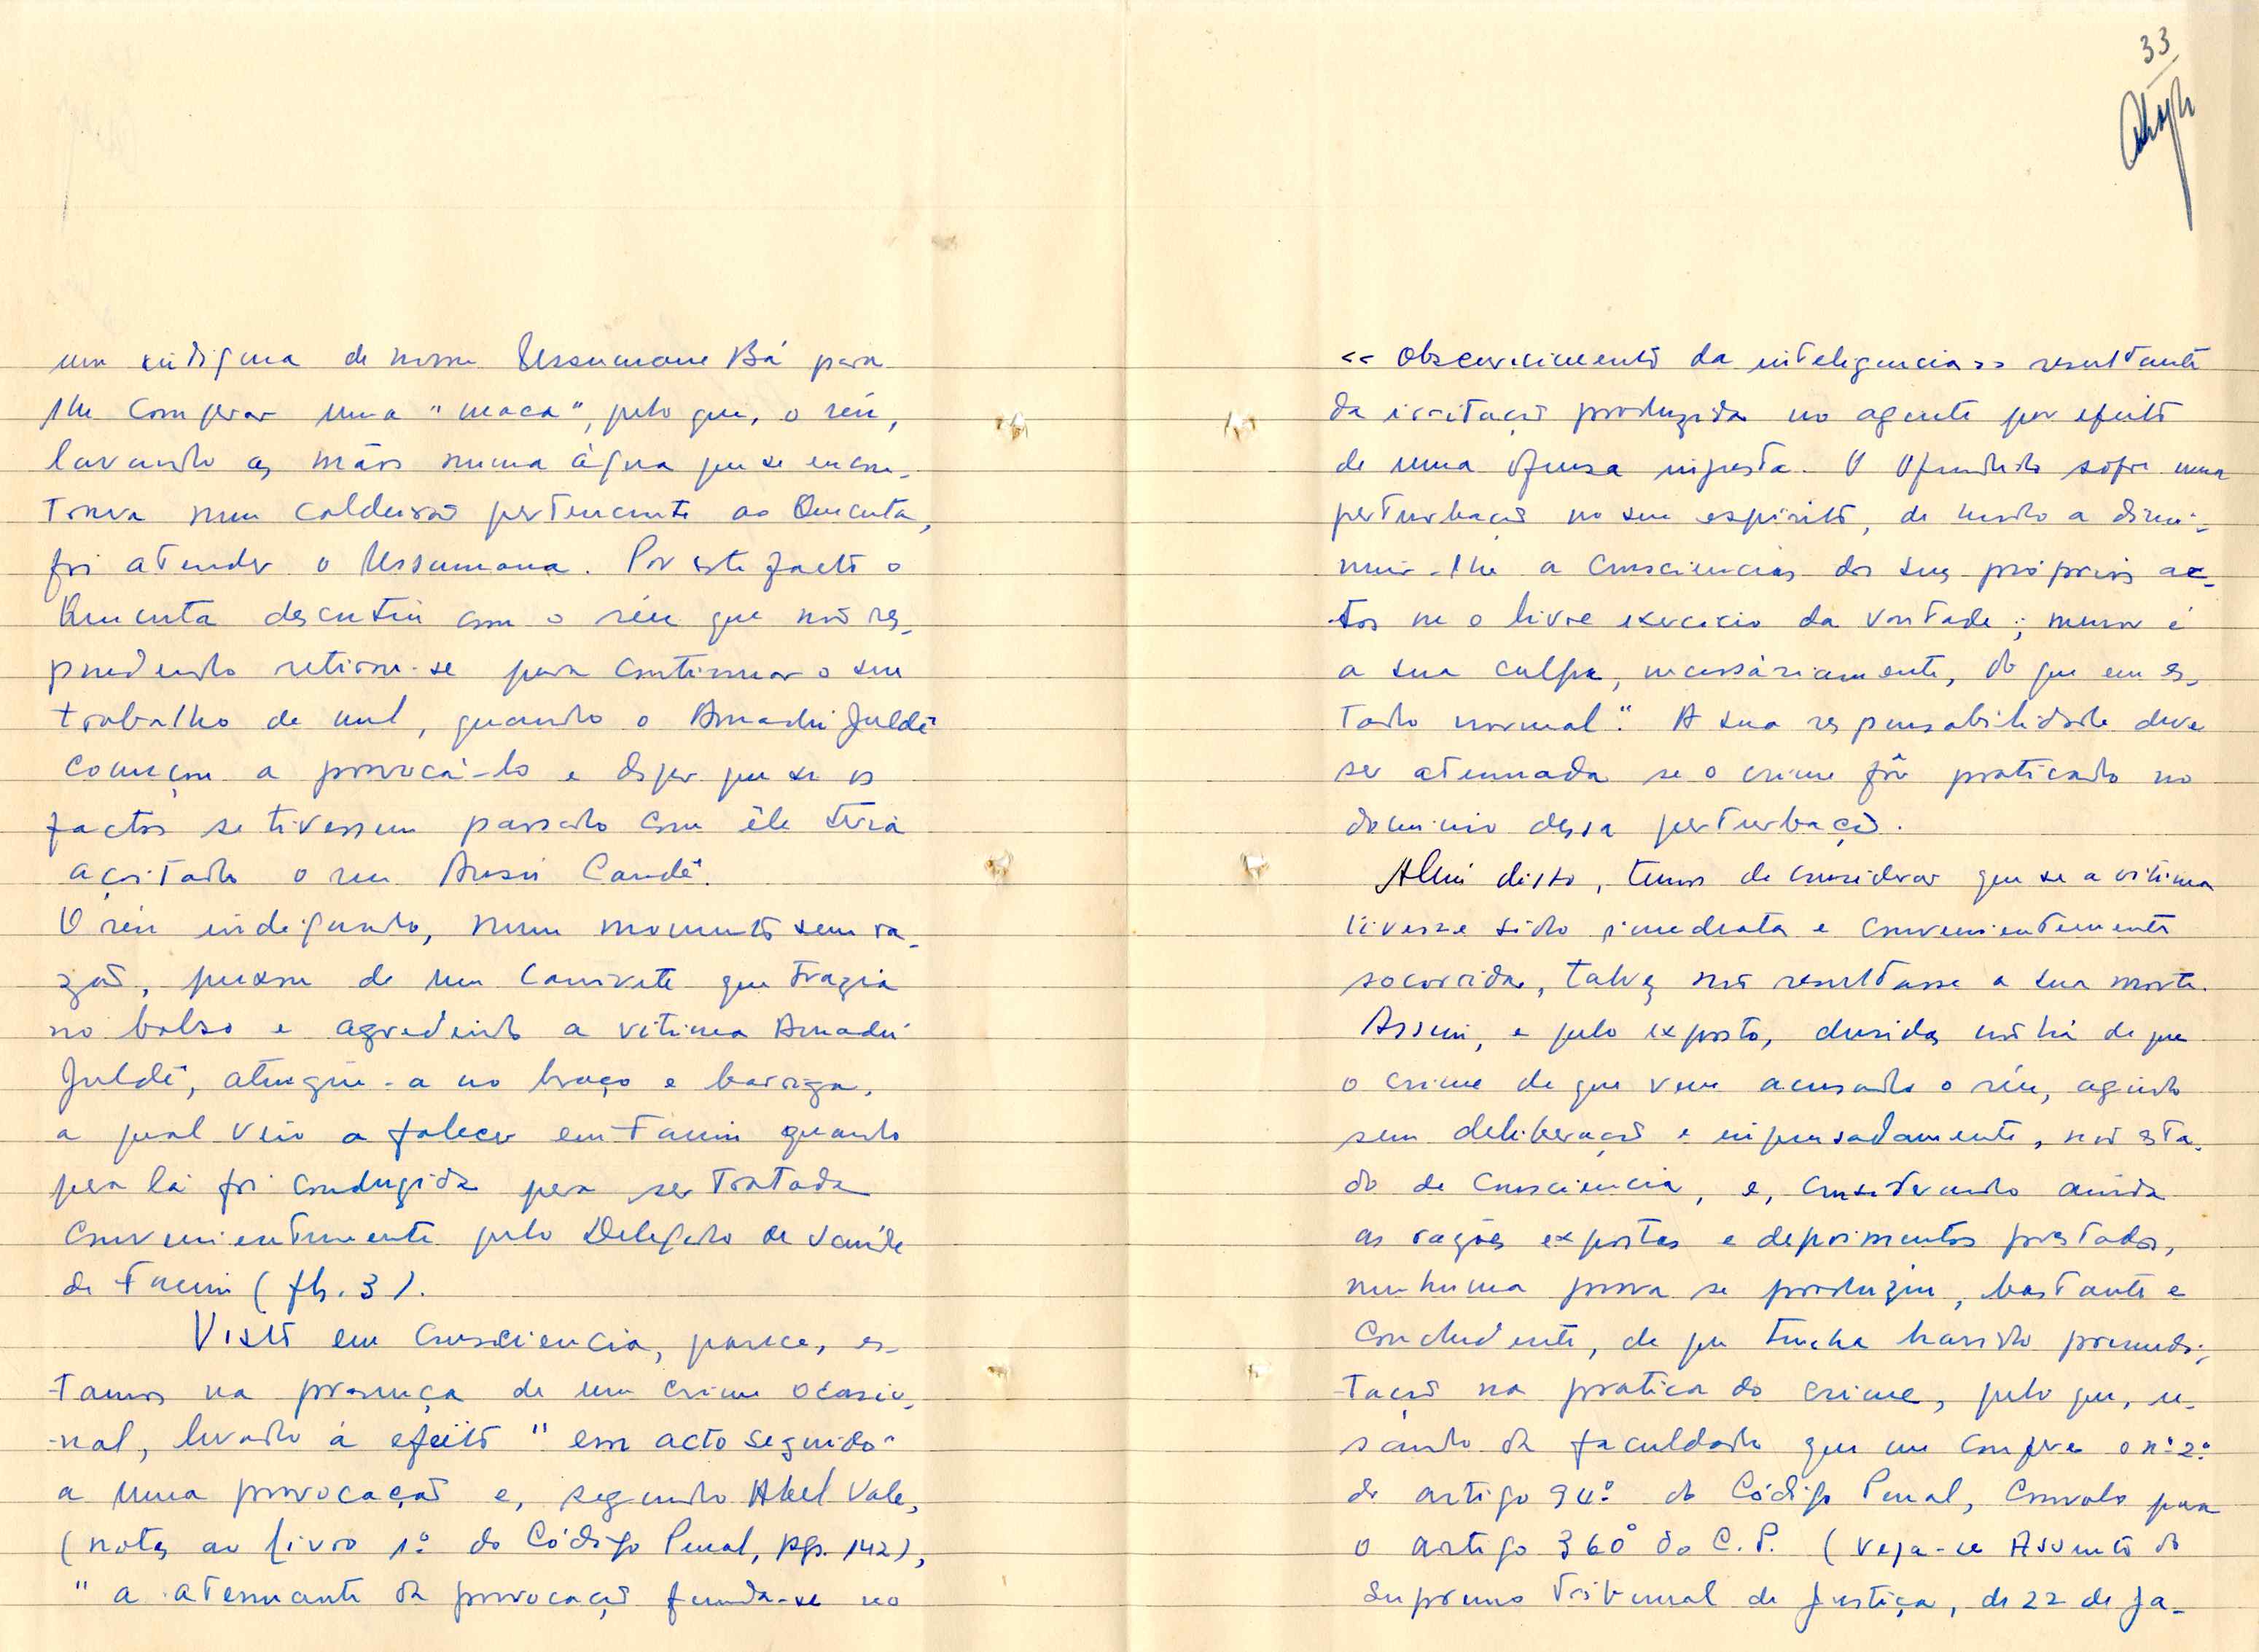 um indígena de nome Ussumane Bá para
lhe comprar uma "maca", pelo que, o réu,
lavando as mãos numa água que se encon-
trava num caldeirão pertencente ao Quecuta,
foi atender o Ussumana. Por este facto o
Quecuta descutiu com o réu que não res-
pondendo retirou-se para continuar o seu
trabalho de mel, quando o Amadú Juldé
começou a provocá-lo e dizer que se os
factos se tivessem passado com êle teria
açoitado o réu Ansú Candé.
O réu indignado, num momento sem ra-
zão, puxou de um canivete que trazia
no bolso e agredindo a vítima Amadú
Juldé, atingiu-a no braço e barriga,
a qual veio a falecer em Farim quando
para lá foi conduzida para ser tratada
convenientemente pelo Delegado de Saúde
de Farim (fls. 3).
Visto em consciencia, parece, es-
tamos na presença de um crime ocasio-
-nal, levado á efeito "em acto seguido"
a uma provocação e, segundo Abel Vale,
(notas ao livro 1º do Código Penal, pgs. 142),
"a atenuante da provocação funda-se no
33
<< obscurecimento da inteligencia >> resultante
da irritação produzida no agente por efeito
de uma ofensa injusta. O ofendido sofre uma
perturbação no seu espírito, de modo a dimi-
nuir-lhe a consciencia dos seus próprios ac-
tos ou o livre exercicio da vontade; menor é
a sua culpa, necessáriamente, do que em es-
tado normal". A sua responsabilidade deve
ser atenuada se o crime fôr praticado no
dominio dessa perturbação.
Além disto, temos de considerar que se a vitima
tivesse sido imediata e convenientemente
socorrida, talvez não resultasse a sua morte.
Assim, e pelo exposto, duvidas não há de que
o crime de que vem acusado o réu, agindo
sem deliberação e impensadamente, no esta-
do de consciencia, e, considerando ainda
as razões expostas e depoimentos prestados,
nenhuma prova se produziu, bastante e
concludente, de que tenha havido premedi-
tação na pratica do crime, pelo que, u-
sando da faculdade que me confere o nº 2º
do artigo 94º do Código Penal, convolo para
o artigo 360º do C. P. (veja-se Assento do
Supremo Tribunal de Justiça, de 22 de Ja-